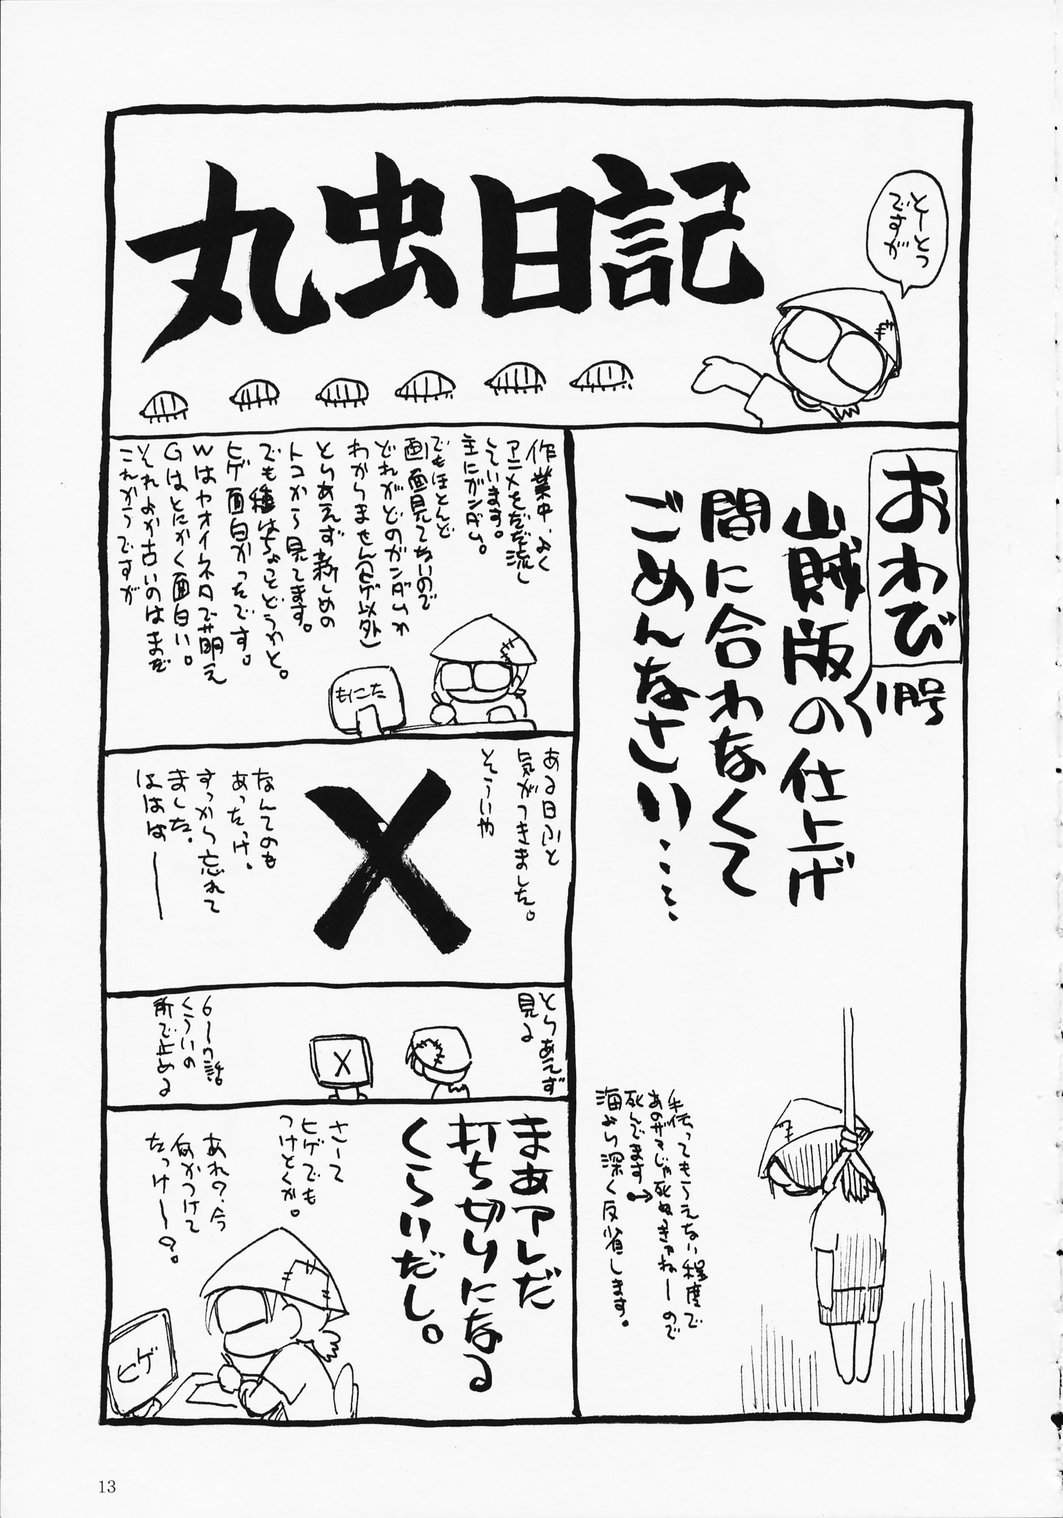 丸虫日記
とーとつ
ですが
おわび
1月号
山賊版の仕上げ
間に合わなくて
ごめんなさい……
手伝ってもらえない程度で
死んでます
海より深く反省します。
作業中、よく
アニメをだだ流し
しています。
主にガンダム。
でもほとんど
画面見てないので
どれがどのガンダムか
わかりません(ヒゲ以外)
とりあえず新しめの
トコから見てます。
でも種はちょっとどうかと。
ヒゲ面白かったです。
Wはヤオイネタで萌え
Gはとにかく面白い。
それよか古いのはまだ
これからですが
もにた
ある日ふと
気がつきました。
そういや
X
なんてのも
あったっけ、
すっかり忘れて
ました。
ははは――
とりあえず
見る
X
6〜7話
くらいの
所で止める
まあアレだ
打ち切りになる
くらいだし。
さーて
ヒゲでも
つけとくか。
あれ?今
何かつけて
たっけ〜?
ヒゲ
13